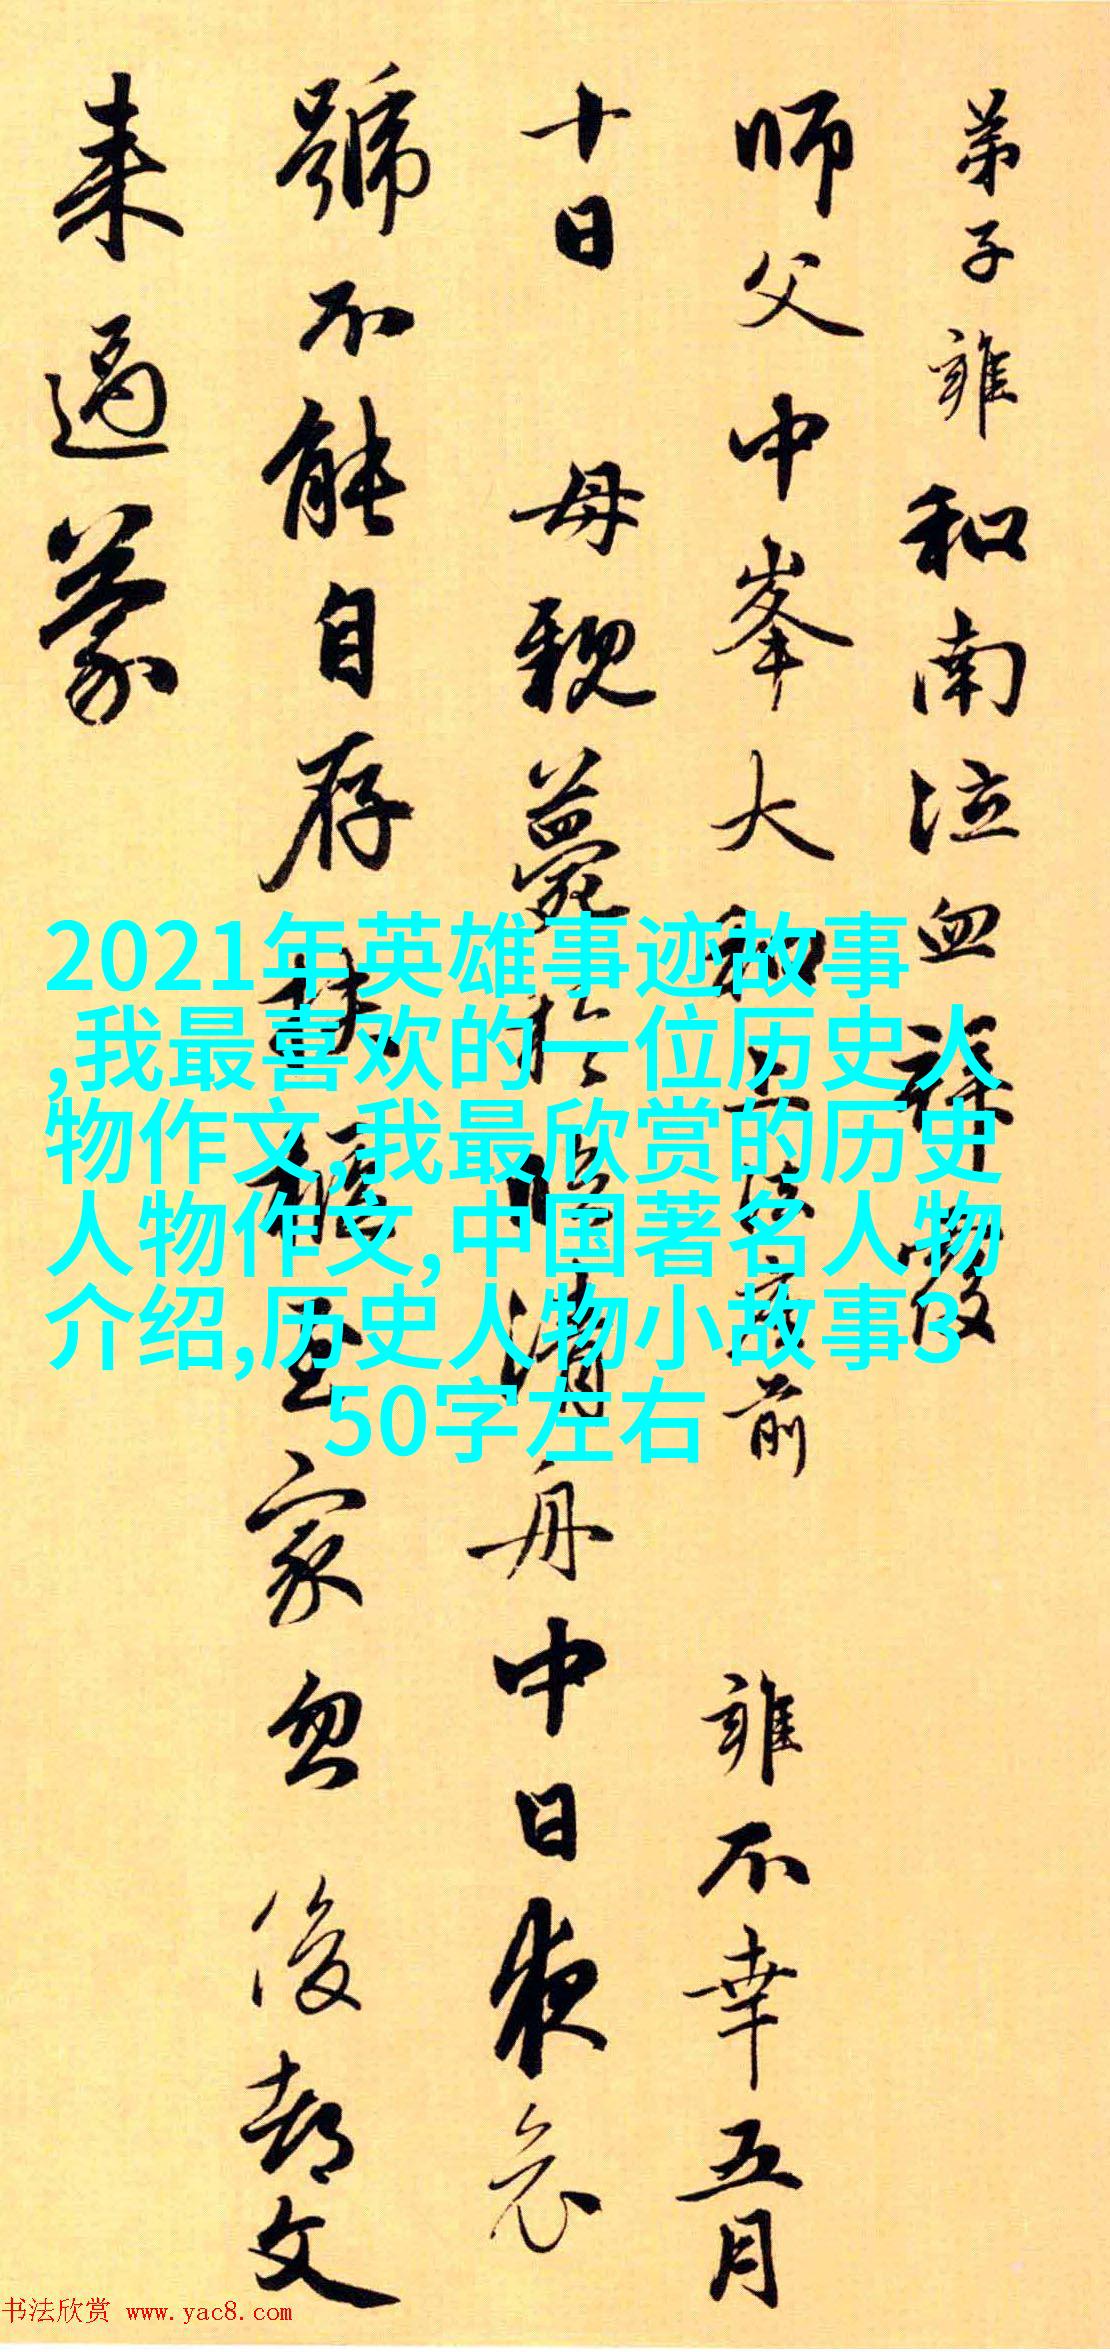 弟子雍和南泣血拜覆
師父中峯大和上法座前 雍不幸五月
十日 母親薨於臨清舟中日夜哀
號不能自存扶櫬至家忽 後都文
来過蒙
2021年英雄事迹故事
,我最喜欢的一位历史人
物作文,我最欣赏的历史
人物作文,中国著名人物
介绍,历史人物小故事3
50字左右
书法欣赏 www.yac8.com